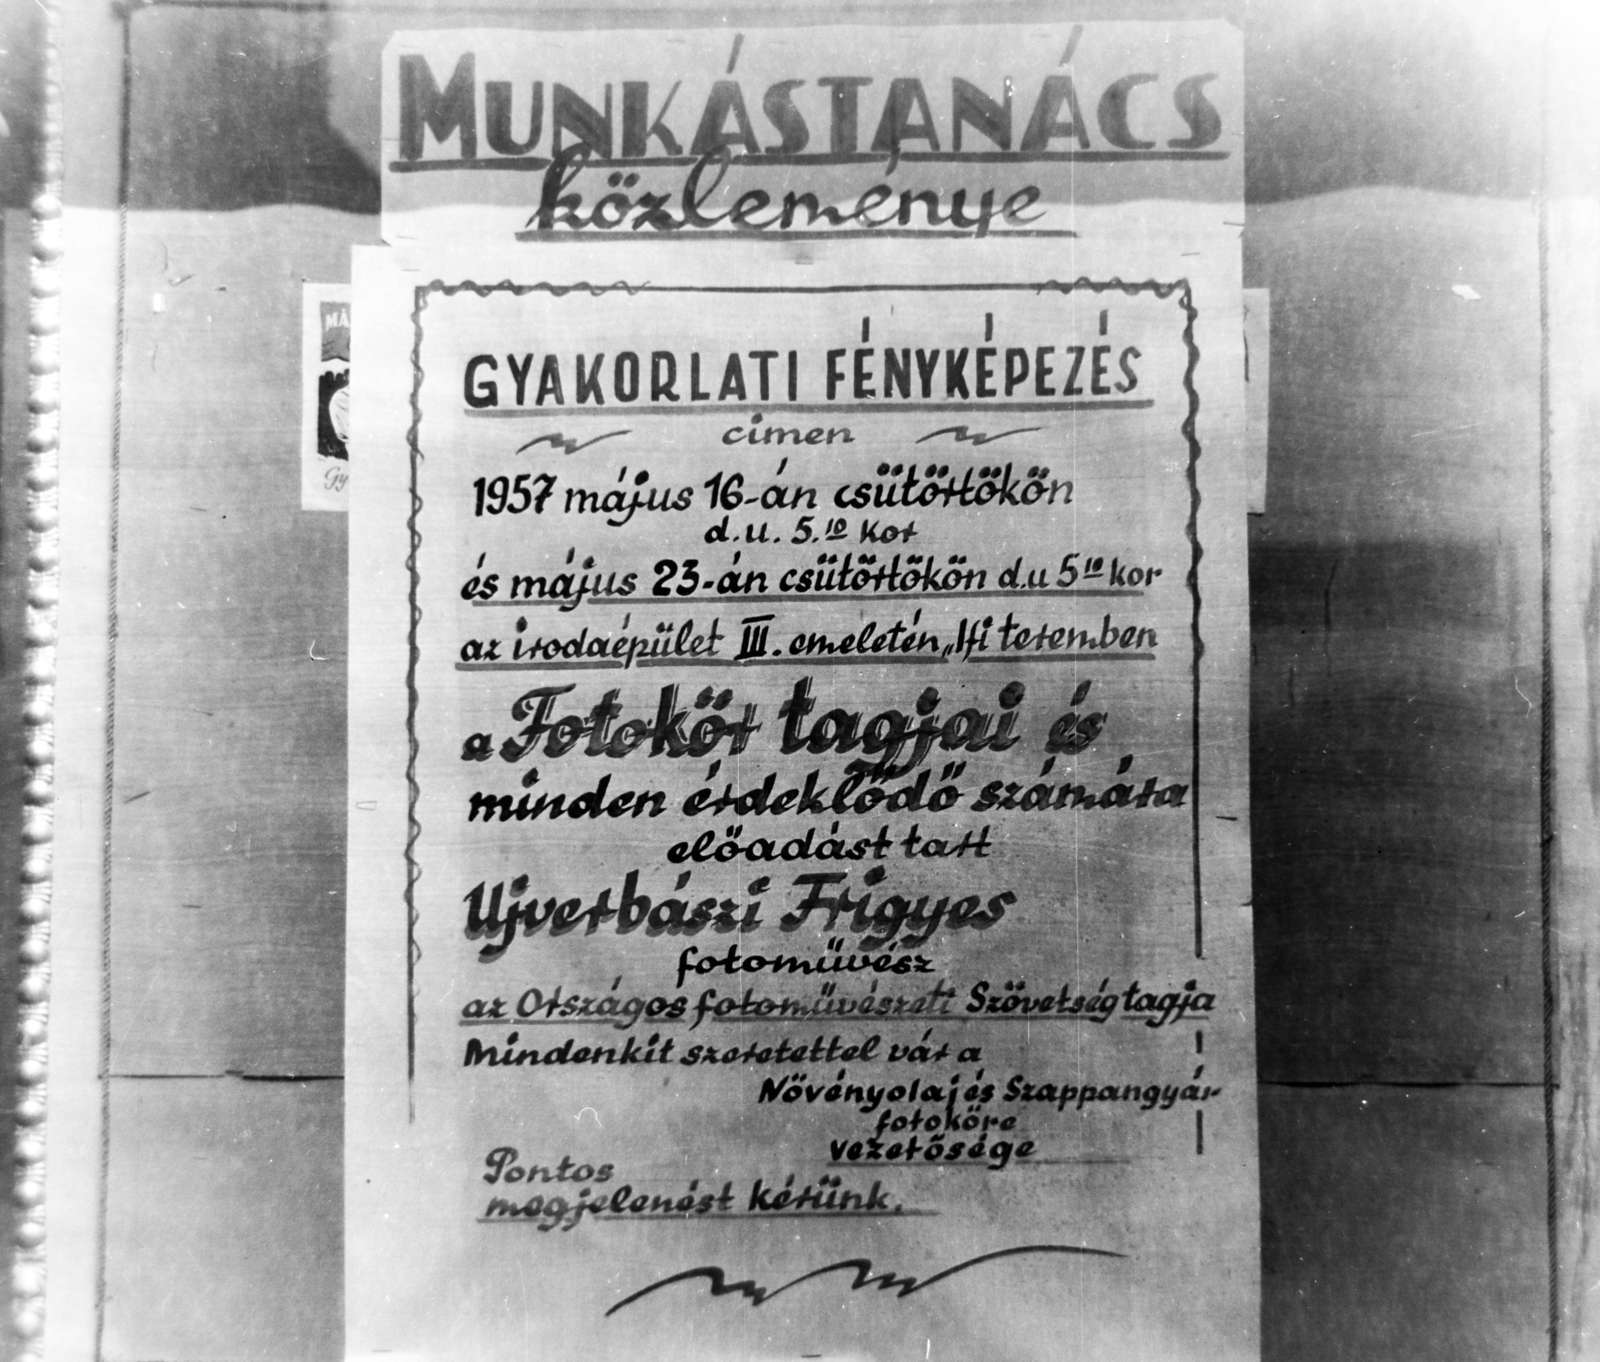 MUNKÁSTANÁCS
közleménye
MÁ
Gy
GYAKORLATI FÉNYKÉPEZÉS
címen
1957 május 16-án csütörtökön
d.u. 5.10 kor
és május 23-án csütörtökön d.u 5 10 kor
az irodaépület III. emeletén „Ifi teremben
a Fotokör tagjai és
minden érdeklődő számára
előadást tart
Ujverbászi Frigyes
fotoművész
az Országos fotoművészeti Szövetség tagja
Mindenkit szeretettel vár a
Növényolaj és Szappangyár
fotoköre
vezetősége
Pontos
megjelenést kérünk.